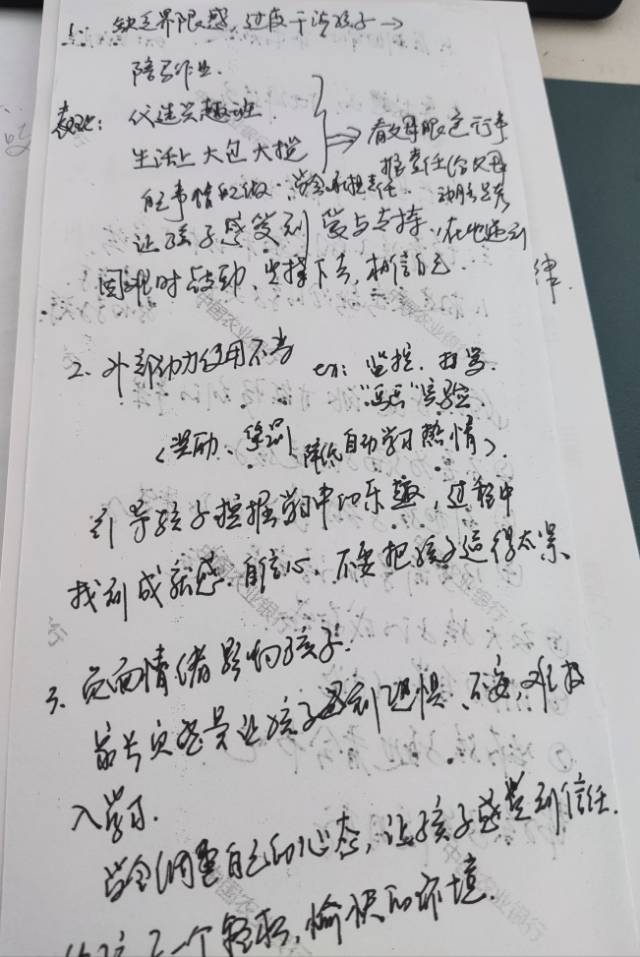 1. 缺乏界限感,过度干涉孩子→
陪写作业.
表现: 代选兴趣班
生活上大包大揽
看父母眼色行事
推责任给父母
旺事情的做. 学会承担责任.
让孩子感受到爱与支持,在他遇到
困难时鼓励、坚持下去,相信自己.
律.
2. 外部动力使用不当 e.g: 监控. 打骂.
实验.
(奖励、惩罚 降低自动学习热情).
引导孩子挖掘学习中的乐趣,过程中
找到成就感. 自信心. 不要把孩子逼得太紧
3. 负面情绪影响孩子.
家长负能量让孩子感到恐惧、不安,难投
入学习.
学会调整自己的心态,让孩子感觉到信任.
给孩子一个轻松,愉快的环境.
中国农业银行